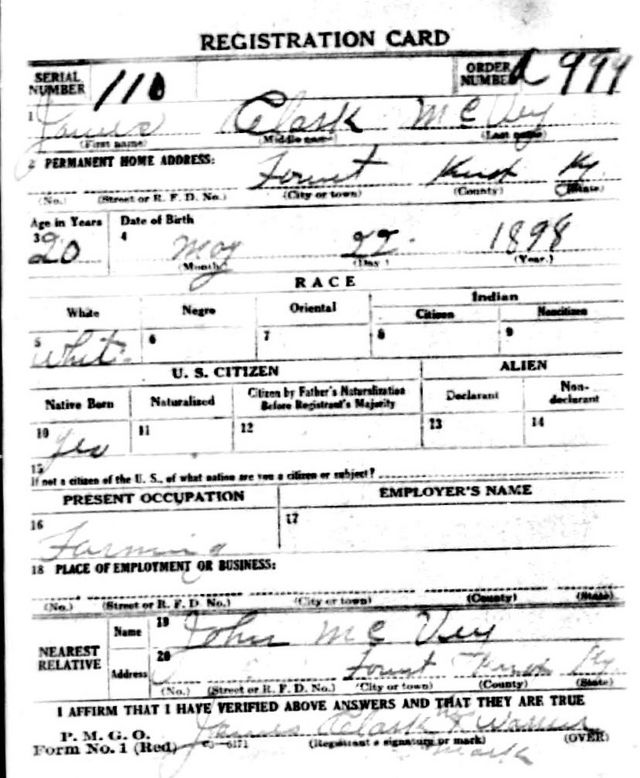 REGISTRATION CARD
SERIAL NUMBER 110 ORDER NUMBER A 999
1 James Clark McVey
(First name) (Middle name) (Last name)
2 PERMANENT HOME ADDRESS: Knox Ky
(No.) (Street or R. F. D. No.) (City or town) (County) (State)
Age in Years Date of Birth
3 20 4 May 22 1898
(Month) (Day) (Year.)
RACE
White Negro Oriental Indian
Citizen Noncitizen
5 White 6 7 8 9
U. S. CITIZEN ALIEN
Native Born Naturalized Citizen by Father's Naturalization Before Registrant's Majority Declarant Non-declarant
10 Yes 11 12 13 14
15 If not a citizen of the U. S., of what nation are you a citizen or subject?
PRESENT OCCUPATION EMPLOYER'S NAME
16 Farming 17
18 PLACE OF EMPLOYMENT OR BUSINESS:
(No.) (Street or R. F. D. No.) (City or town) (County) (State)
NEAREST RELATIVE Name 19 John McVey
Address 20 Knox Ky
(No.) (Street or R. F. D. No.) (City or town) (County) (State)
I AFFIRM THAT I HAVE VERIFIED ABOVE ANSWERS AND THAT THEY ARE TRUE
P. M. G. O. James Clark
Form No. 1 (Red) (Registrant's signature or mark) (OVER)
mark